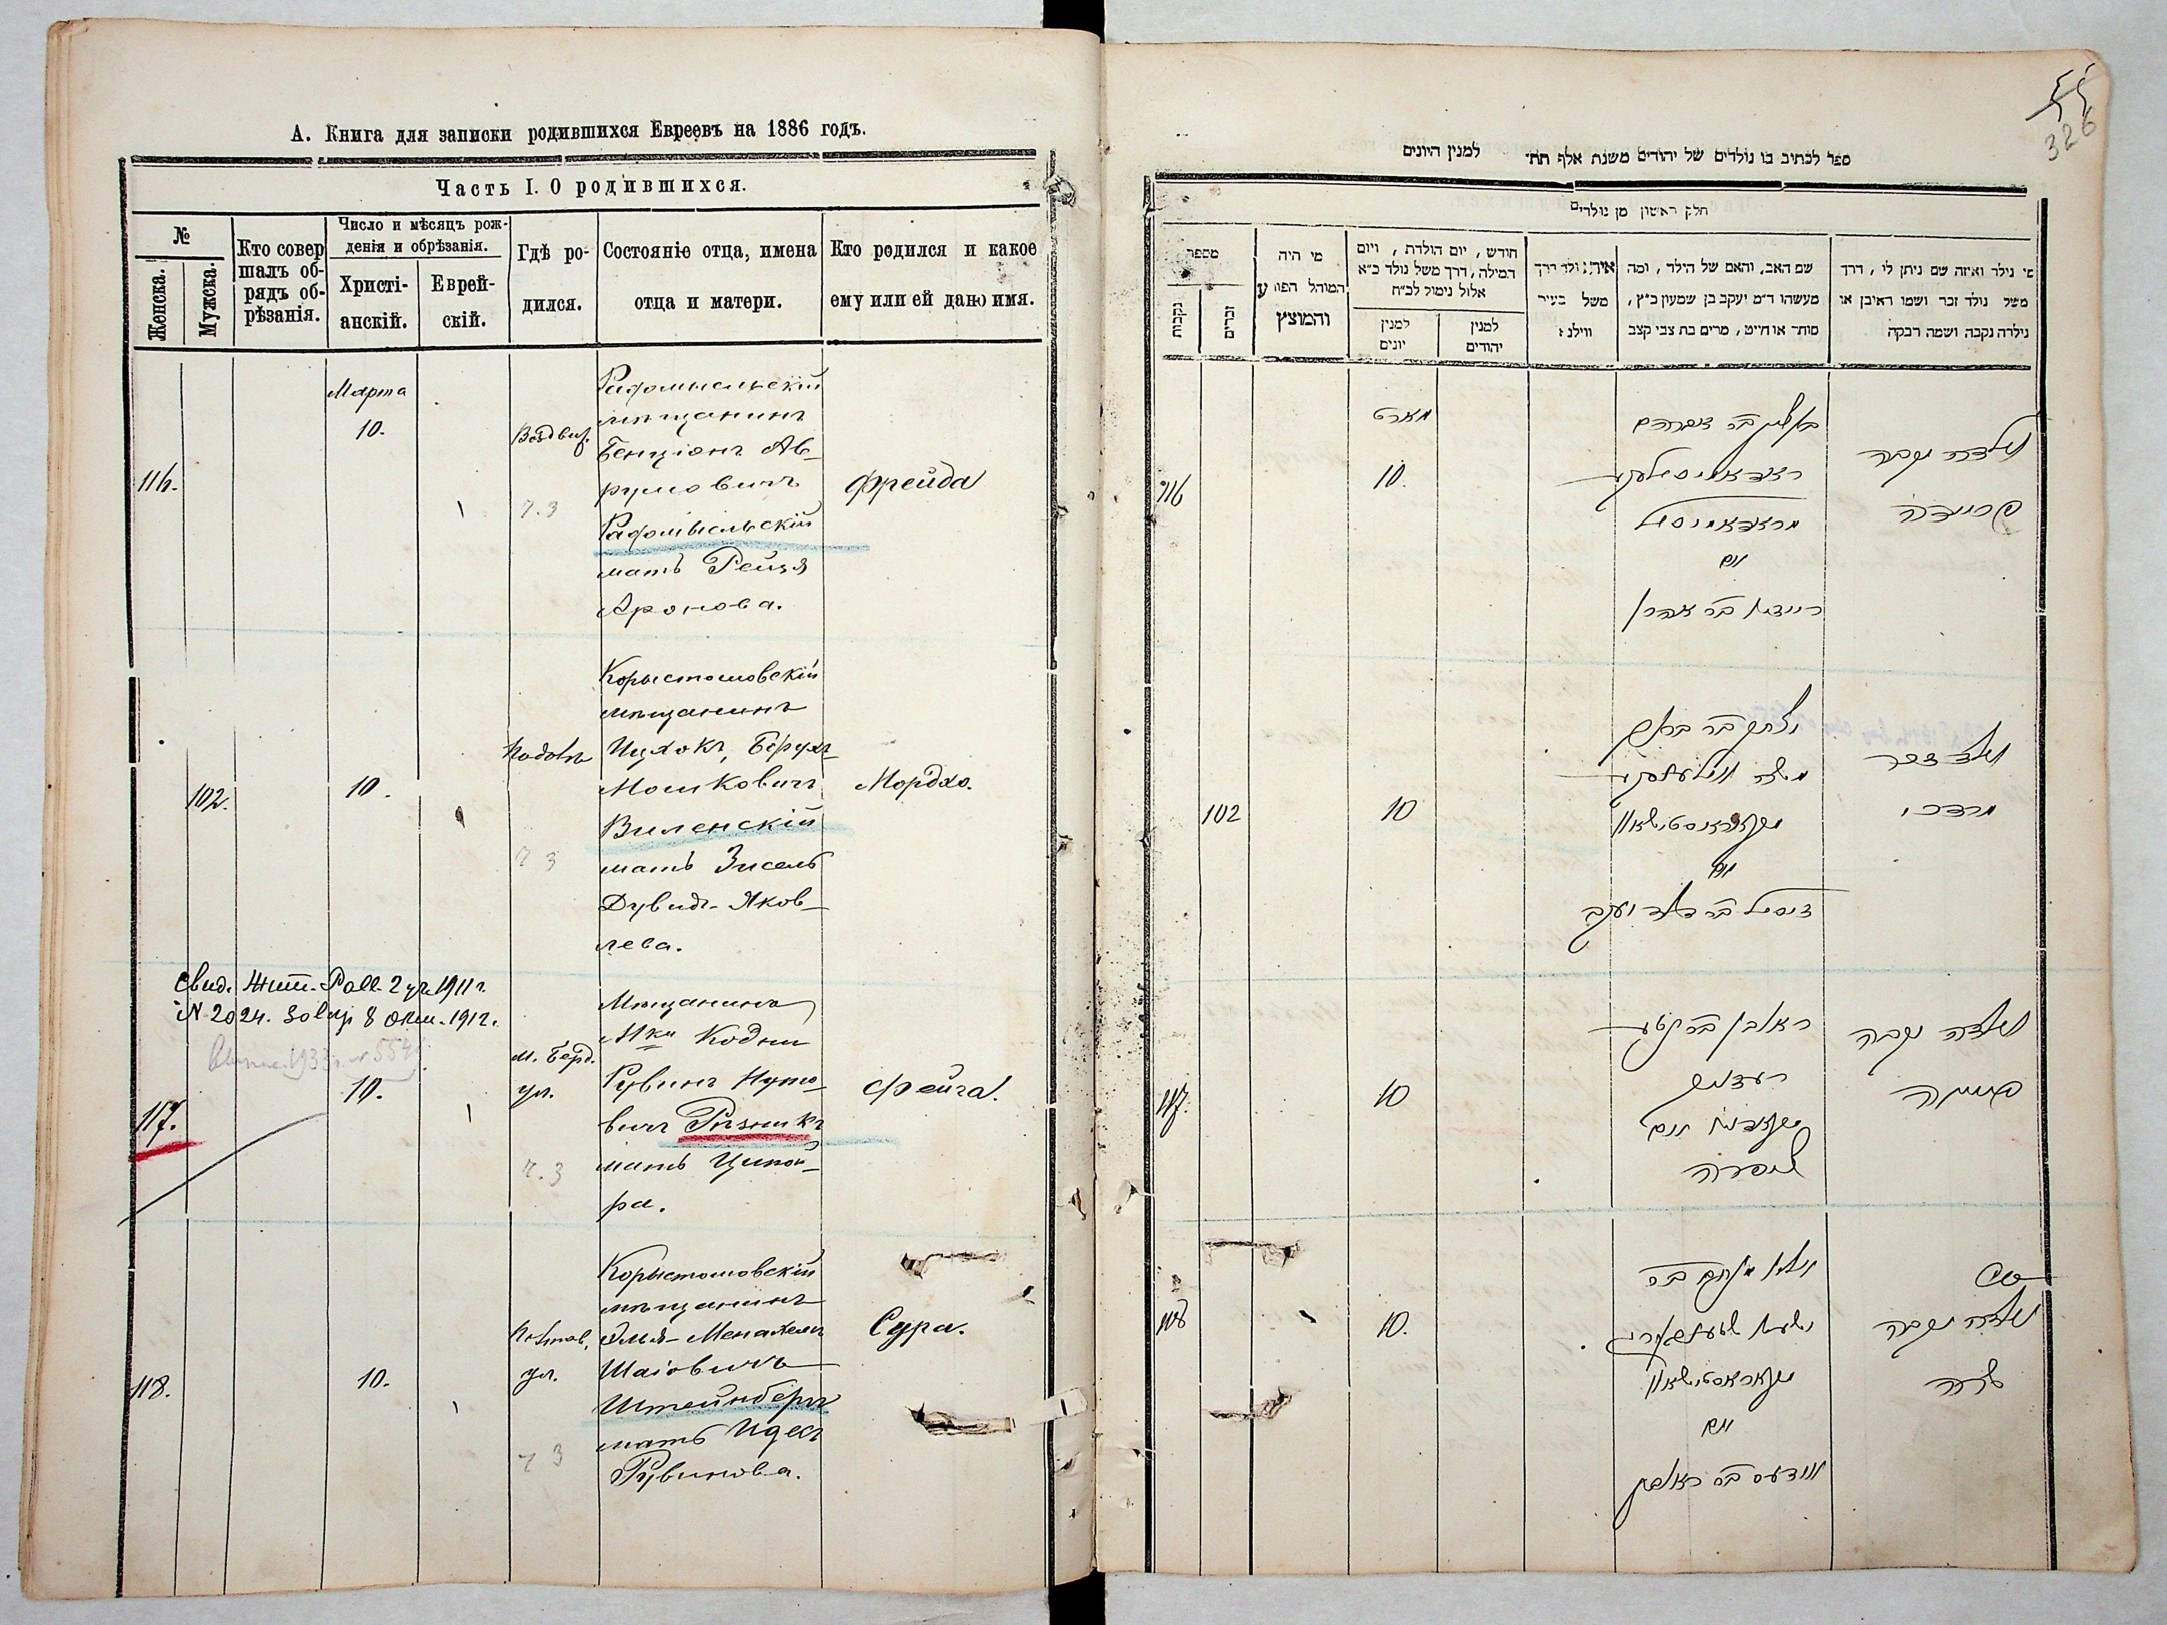 А. Книга для записки родившихся Евреевъ на 1886 годъ.
Часть I. О родившихся.
№
Женска.
Мужска.
Кто совер
шалъ об-
рядъ об-
рѣзанія.
Число и мѣсяцъ рож-
денія и обрѣзанія.
Христі-
анскій.
Еврей-
скій.
Гдѣ ро-
дился.
Состояніе отца, имена
отца и матери.
Кто родился и какое
ему или ей дано имя.
116.
Марта
10.
Воздвиж.
ч. 3
Радомысльскій
мѣщанинъ
Бенціонъ Ав-
румовичъ
Радомысльскій
мать Рейзя
Аронова.
Фрейда
102.
10.
Подолъ
ч 3
Корыстошовскій
мѣщанинъ
Ицхокъ, Берухъ
Мошковичъ
Виленскій
мать Зисель
Дувидъ-Яков-
лева.
Мордхо.
Свид. Жит. Полл. 2 уч. 1911 г.
№ 2024. 8 окт. 1912.
117.
10.
м. Берд.
ул.
ч. 3
Мѣщанинъ
М-ка Кодни
Рувинъ Нуто-
вичъ Рѣзникъ
мать Ципой-
ра.
Фейга.
118.
10.
ул.
ч 3
Корыстошовскій
мѣщанинъ
Эля-Менахемъ
Шаіовичъ
Штейнбергъ
мать Идесъ
Рувинова.
Сура.
326
ספר לכתיב בו נולדים של יהודים משנת אלף תת׳ למנין היונים
חלק ראשון מן נולדים
מספר
נקבות
זכרים
מי היה
המוהל הפורע
והמוצץ
חודש, יום הולדת, ויום
המילה, דרך משל נולד כ״א
אלול נימול לכ״ח
למנין
יונים
למנין
יהודים
איה נולד דרך
משל בעיר
ווילנא
שם האב, והאם של הילד, ומה
מעשהו ד״מ יעקב בן שמעון כ״ץ,
סוחר או חייט, מרים בת צבי קצב
מי נולד ואיזה שם ניתן לו, דרך
משל נולד זכר ושמו ראובן או
נולדה נקבה ושמה רבקה
116
מארט
10.
ראדאמיסלסקי
ואם
נולדה נקבה
פריידה
102
10
משה ווילענסקי
ואם
זיסיל בר דוד יעקב
נולד זכר
מרדכי
117.
10
רעזניק
ציפרה
נולדה נקבה
פייגה
118
10.
ואם
נולדה נקבה
שרה